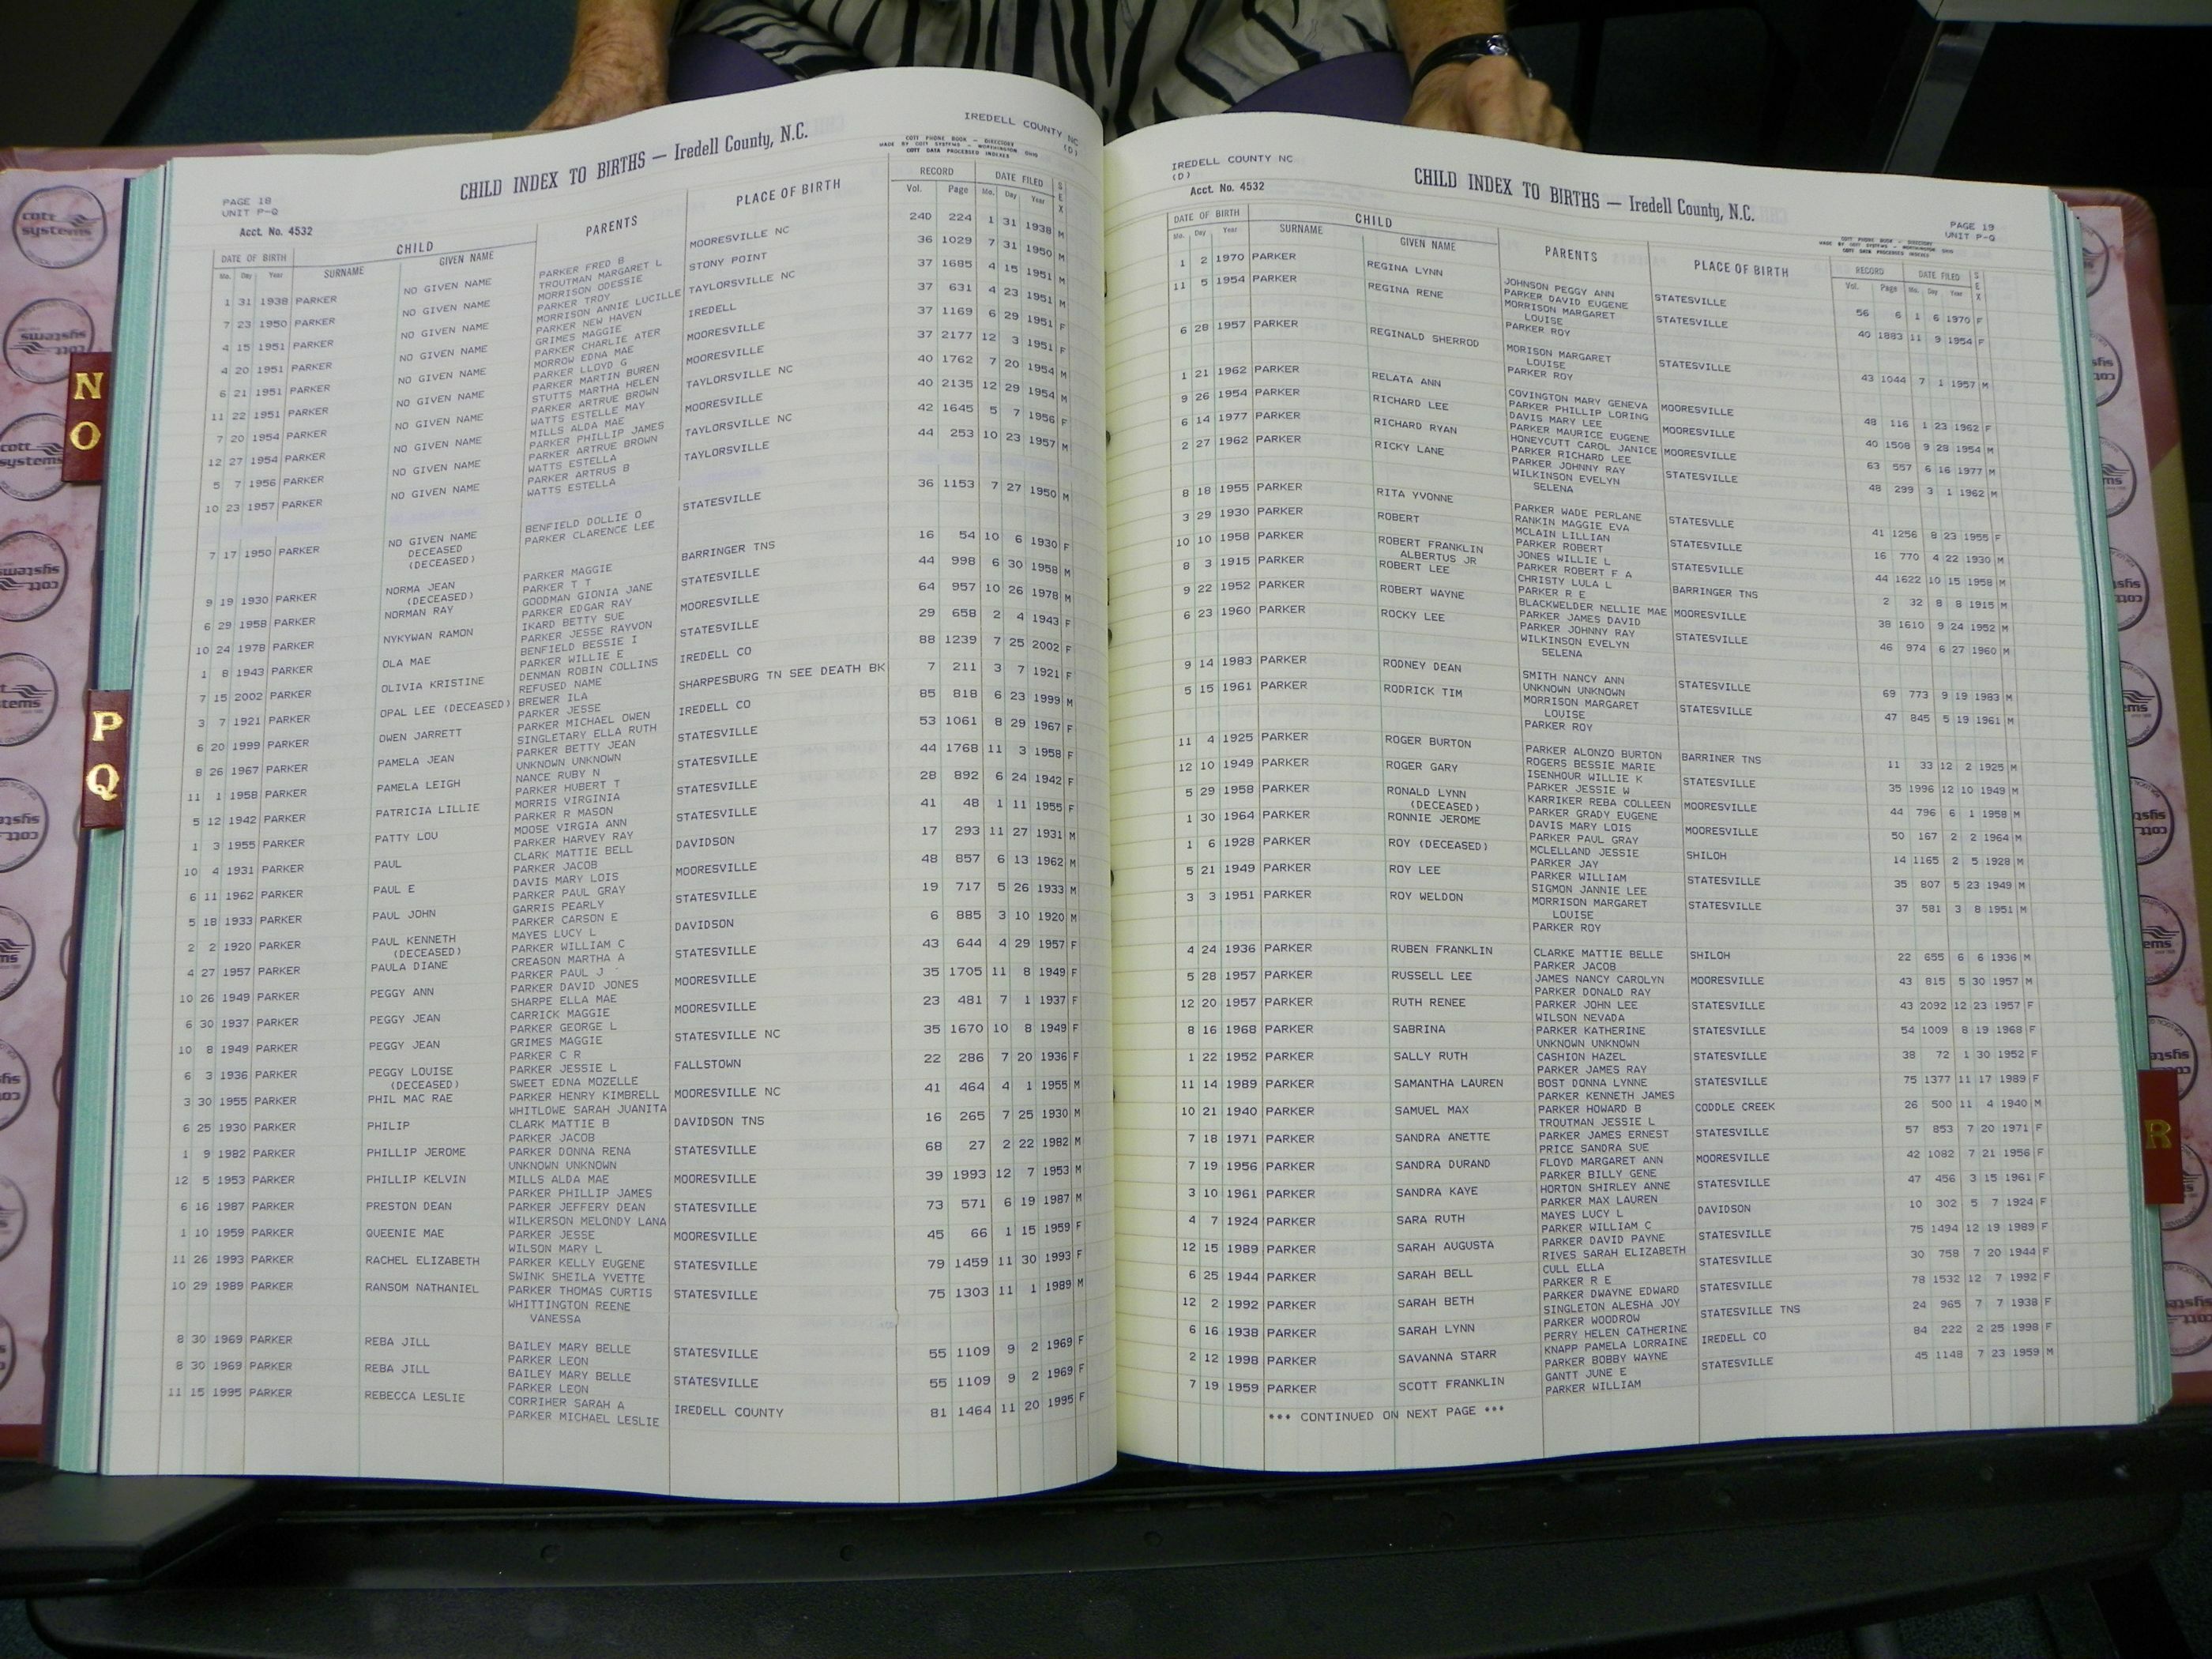 IREDELL COUNTY NC
(D)
PAGE 18
UNIT P-Q
CHILD INDEX TO BIRTHS — Iredell County, N.C.
COTT PHONE BOOK — DIRECTORY
MADE BY COTT SYSTEMS — WORTHINGTON OHIO
COTT DATA PROCESSED INDEXES
Acct. No. 4532
DATE OF BIRTH CHILD PARENTS PLACE OF BIRTH RECORD DATE FILED SEX
Mo. Day Year SURNAME GIVEN NAME Vol. Page Mo. Day Year
1 31 1938 PARKER NO GIVEN NAME PARKER FRED B MOORESVILLE NC 240 224 1 31 1938 M
TROUTMAN MARGARET L
7 23 1950 PARKER NO GIVEN NAME MORRISON ODESSIE STONY POINT 36 1029 7 31 1950 M
PARKER TROY
4 15 1951 PARKER NO GIVEN NAME MORRISON ANNIE LUCILLE TAYLORSVILLE NC 37 1685 4 15 1951 M
PARKER NEW HAVEN
4 20 1951 PARKER NO GIVEN NAME GRIMES MAGGIE IREDELL 37 631 4 23 1951 M
PARKER CHARLIE ATER
6 21 1951 PARKER NO GIVEN NAME MORROW EDNA MAE MOORESVILLE 37 1169 6 29 1951 F
PARKER LLOYD G
11 22 1951 PARKER NO GIVEN NAME PARKER MARTIN BUREN MOORESVILLE 37 2177 12 3 1951 F
STUTTS MARTHA HELEN
7 20 1954 PARKER NO GIVEN NAME PARKER ARTRUE BROWN TAYLORSVILLE NC 40 1762 7 20 1954 M
WATTS ESTELLE MAY
12 27 1954 PARKER NO GIVEN NAME MILLS ALDA MAE MOORESVILLE 40 2135 12 29 1954 M
PARKER PHILLIP JAMES
5 7 1956 PARKER NO GIVEN NAME PARKER ARTRUE BROWN TAYLORSVILLE NC 42 1645 5 7 1956 F
WATTS ESTELLA
10 23 1957 PARKER NO GIVEN NAME PARKER ARTRUS B TAYLORSVILLE 44 253 10 23 1957 M
WATTS ESTELLA
7 17 1950 PARKER NO GIVEN NAME BENFIELD DOLLIE O STATESVILLE 36 1153 7 27 1950 M
DECEASED PARKER CLARENCE LEE
(DECEASED)
9 19 1930 PARKER NORMA JEAN PARKER MAGGIE BARRINGER TNS 16 54 10 6 1930 F
(DECEASED) PARKER T T
6 29 1958 PARKER NORMAN RAY GOODMAN GIONIA JANE STATESVILLE 44 998 6 30 1958 M
PARKER EDGAR RAY
10 24 1978 PARKER NYKYWAN RAMON IKARD BETTY SUE MOORESVILLE 64 957 10 26 1978 M
PARKER JESSE RAYVON
1 8 1943 PARKER OLA MAE BENFIELD BESSIE I STATESVILLE 29 658 2 4 1943 F
PARKER WILLIE E
7 15 2002 PARKER OLIVIA KRISTINE DENMAN ROBIN COLLINS IREDELL CO 88 1239 7 25 2002 F
REFUSED NAME
3 7 1921 PARKER OPAL LEE (DECEASED) BREWER ILA SHARPESBURG TN SEE DEATH BK 7 211 3 7 1921 F
PARKER JESSE
6 20 1999 PARKER OWEN JARRETT PARKER MICHAEL OWEN IREDELL CO 85 818 6 23 1999 M
SINGLETARY ELLA RUTH
8 26 1967 PARKER PAMELA JEAN PARKER BETTY JEAN STATESVILLE 53 1061 8 29 1967 F
UNKNOWN UNKNOWN
11 1 1958 PARKER PAMELA LEIGH NANCE RUBY N STATESVILLE 44 1768 11 3 1958 F
PARKER HUBERT T
5 12 1942 PARKER PATRICIA LILLIE MORRIS VIRGINIA STATESVILLE 28 892 6 24 1942 F
PARKER R MASON
1 3 1955 PARKER PATTY LOU MOOSE VIRGIA ANN STATESVILLE 41 48 1 11 1955 F
PARKER HARVEY RAY
10 4 1931 PARKER PAUL CLARK MATTIE BELL DAVIDSON 17 293 11 27 1931 M
PARKER JACOB
6 11 1962 PARKER PAUL E DAVIS MARY LOIS MOORESVILLE 48 857 6 13 1962 M
PARKER PAUL GRAY
5 18 1933 PARKER PAUL JOHN GARRIS PEARLY STATESVILLE 19 717 5 26 1933 M
PARKER CARSON E
2 2 1920 PARKER PAUL KENNETH MAYES LUCY L DAVIDSON 6 885 3 10 1920 M
(DECEASED) PARKER WILLIAM C
4 27 1957 PARKER PAULA DIANE CREASON MARTHA A STATESVILLE 43 644 4 29 1957 F
PARKER PAUL J
10 26 1949 PARKER PEGGY ANN PARKER DAVID JONES MOORESVILLE 35 1705 11 8 1949 F
SHARPE ELLA MAE
6 30 1937 PARKER PEGGY JEAN CARRICK MAGGIE MOORESVILLE 23 481 7 1 1937 F
PARKER GEORGE L
10 8 1949 PARKER PEGGY JEAN GRIMES MAGGIE STATESVILLE NC 35 1670 10 8 1949 F
PARKER C R
6 3 1936 PARKER PEGGY LOUISE PARKER JESSIE L FALLSTOWN 22 286 7 20 1936 F
(DECEASED) SWEET EDNA MOZELLE
3 30 1955 PARKER PHIL MAC RAE PARKER HENRY KIMBRELL MOORESVILLE NC 41 464 4 1 1955 M
WHITLOWE SARAH JUANITA
6 25 1930 PARKER PHILIP CLARK MATTIE B DAVIDSON TNS 16 265 7 25 1930 M
PARKER JACOB
1 9 1982 PARKER PHILLIP JEROME PARKER DONNA RENA STATESVILLE 68 27 2 22 1982 M
UNKNOWN UNKNOWN
12 5 1953 PARKER PHILLIP KELVIN MILLS ALDA MAE MOORESVILLE 39 1993 12 7 1953 M
PARKER PHILLIP JAMES
6 16 1987 PARKER PRESTON DEAN PARKER JEFFERY DEAN STATESVILLE 73 571 6 19 1987 M
WILKERSON MELONDY LANA
1 10 1959 PARKER QUEENIE MAE PARKER JESSE MOORESVILLE 45 66 1 15 1959 F
WILSON MARY L
11 26 1993 PARKER RACHEL ELIZABETH PARKER KELLY EUGENE STATESVILLE 79 1459 11 30 1993 F
SWINK SHEILA YVETTE
10 29 1989 PARKER RANSOM NATHANIEL PARKER THOMAS CURTIS STATESVILLE 75 1303 11 1 1989 M
WHITTINGTON REENE
VANESSA
8 30 1969 PARKER REBA JILL BAILEY MARY BELLE STATESVILLE 55 1109 9 2 1969 F
PARKER LEON
8 30 1969 PARKER REBA JILL BAILEY MARY BELLE STATESVILLE 55 1109 9 2 1969 F
PARKER LEON
11 15 1995 PARKER REBECCA LESLIE CORRIHER SARAH A IREDELL COUNTY 81 1464 11 20 1995 F
PARKER MICHAEL LESLIE
IREDELL COUNTY NC
(D)
Acct. No. 4532
CHILD INDEX TO BIRTHS — Iredell County, N.C.
PAGE 19
UNIT P-Q
COTT PHONE BOOK — DIRECTORY
MADE BY COTT SYSTEMS — WORTHINGTON OHIO
COTT DATA PROCESSED INDEXES
DATE OF BIRTH CHILD PARENTS PLACE OF BIRTH RECORD DATE FILED SEX
Mo. Day Year SURNAME GIVEN NAME Vol. Page Mo. Day Year
1 2 1970 PARKER REGINA LYNN JOHNSON PEGGY ANN STATESVILLE 56 6 1 6 1970 F
PARKER DAVID EUGENE
11 5 1954 PARKER REGINA RENE MORRISON MARGARET STATESVILLE 40 1883 11 9 1954 F
LOUISE
PARKER ROY
6 28 1957 PARKER REGINALD SHERROD MORISON MARGARET STATESVILLE 43 1044 7 1 1957 M
LOUISE
PARKER ROY
1 21 1962 PARKER RELATA ANN COVINGTON MARY GENEVA MOORESVILLE 48 116 1 23 1962 F
PARKER PHILLIP LORING
9 26 1954 PARKER RICHARD LEE DAVIS MARY LEE MOORESVILLE 40 1508 9 28 1954 M
PARKER MAURICE EUGENE
6 14 1977 PARKER RICHARD RYAN HONEYCUTT CAROL JANICE MOORESVILLE 63 557 6 16 1977 M
PARKER RICHARD LEE
2 27 1962 PARKER RICKY LANE PARKER JOHNNY RAY STATESVILLE 48 299 3 1 1962 M
WILKINSON EVELYN
SELENA
8 18 1955 PARKER RITA YVONNE PARKER WADE PERLANE STATESVLLE 41 1256 8 23 1955 F
RANKIN MAGGIE EVA
3 29 1930 PARKER ROBERT MCLAIN LILLIAN STATESVILLE 16 770 4 22 1930 M
PARKER ROBERT
10 10 1958 PARKER ROBERT FRANKLIN JONES WILLIE L STATESVILLE 44 1622 10 15 1958 M
ALBERTUS JR PARKER ROBERT F A
8 3 1915 PARKER ROBERT LEE CHRISTY LULA L BARRINGER TNS 2 32 8 8 1915 M
PARKER R E
9 22 1952 PARKER ROBERT WAYNE BLACKWELDER NELLIE MAE MOORESVILLE 38 1610 9 24 1952 M
PARKER JAMES DAVID
6 23 1960 PARKER ROCKY LEE PARKER JOHNNY RAY STATESVILLE 46 974 6 27 1960 M
WILKINSON EVELYN
SELENA
9 14 1983 PARKER RODNEY DEAN SMITH NANCY ANN STATESVILLE 69 773 9 19 1983 M
UNKNOWN UNKNOWN
5 15 1961 PARKER RODRICK TIM MORRISON MARGARET STATESVILLE 47 845 5 19 1961 M
LOUISE
PARKER ROY
11 4 1925 PARKER ROGER BURTON PARKER ALONZO BURTON BARRINER TNS 11 33 12 2 1925 M
ROGERS BESSIE MARIE
12 10 1949 PARKER ROGER GARY ISENHOUR WILLIE K STATESVILLE 35 1996 12 10 1949 M
PARKER JESSIE W
5 29 1958 PARKER RONALD LYNN KARRIKER REBA COLLEEN MOORESVILLE 44 796 6 1 1958 M
(DECEASED) PARKER GRADY EUGENE
1 30 1964 PARKER RONNIE JEROME DAVIS MARY LOIS MOORESVILLE 50 167 2 2 1964 M
PARKER PAUL GRAY
1 6 1928 PARKER ROY (DECEASED) MCLELLAND JESSIE SHILOH 14 1165 2 5 1928 M
PARKER JAY
5 21 1949 PARKER ROY LEE PARKER WILLIAM STATESVILLE 35 807 5 23 1949 M
SIGMON JANNIE LEE
3 3 1951 PARKER ROY WELDON MORRISON MARGARET STATESVILLE 37 581 3 8 1951 M
LOUISE
PARKER ROY
4 24 1936 PARKER RUBEN FRANKLIN CLARKE MATTIE BELLE SHILOH 22 655 6 6 1936 M
PARKER JACOB
5 28 1957 PARKER RUSSELL LEE JAMES NANCY CAROLYN MOORESVILLE 43 815 5 30 1957 M
PARKER DONALD RAY
12 20 1957 PARKER RUTH RENEE PARKER JOHN LEE STATESVILLE 43 2092 12 23 1957 F
WILSON NEVADA
8 16 1968 PARKER SABRINA PARKER KATHERINE STATESVILLE 54 1009 8 19 1968 F
UNKNOWN UNKNOWN
1 22 1952 PARKER SALLY RUTH CASHION HAZEL STATESVILLE 38 72 1 30 1952 F
PARKER JAMES RAY
11 14 1989 PARKER SAMANTHA LAUREN BOST DONNA LYNNE STATESVILLE 75 1377 11 17 1989 F
PARKER KENNETH JAMES
10 21 1940 PARKER SAMUEL MAX PARKER HOWARD B CODDLE CREEK 26 500 11 4 1940 M
TROUTMAN JESSIE L
7 18 1971 PARKER SANDRA ANETTE PARKER JAMES ERNEST STATESVILLE 57 853 7 20 1971 F
PRICE SANDRA SUE
7 19 1956 PARKER SANDRA DURAND FLOYD MARGARET ANN MOORESVILLE 42 1082 7 21 1956 F
PARKER BILLY GENE
3 10 1961 PARKER SANDRA KAYE HORTON SHIRLEY ANNE STATESVILLE 47 456 3 15 1961 F
PARKER MAX LAUREN
4 7 1924 PARKER SARA RUTH MAYES LUCY L DAVIDSON 10 302 5 7 1924 F
PARKER WILLIAM C
12 15 1989 PARKER SARAH AUGUSTA PARKER DAVID PAYNE STATESVILLE 75 1494 12 19 1989 F
RIVES SARAH ELIZABETH
6 25 1944 PARKER SARAH BELL CULL ELLA STATESVILLE 30 758 7 20 1944 F
PARKER R E
12 2 1992 PARKER SARAH BETH PARKER DWAYNE EDWARD STATESVILLE 78 1532 12 7 1992 F
SINGLETON ALESHA JOY
6 16 1938 PARKER SARAH LYNN PARKER WOODROW STATESVILLE TNS 24 965 7 7 1938 F
PERRY HELEN CATHERINE
2 12 1998 PARKER SAVANNA STARR KNAPP PAMELA LORRAINE IREDELL CO 84 222 2 25 1998 F
PARKER BOBBY WAYNE
7 19 1959 PARKER SCOTT FRANKLIN GANTT JUNE E STATESVILLE 45 1148 7 23 1959 M
PARKER WILLIAM
*** CONTINUED ON NEXT PAGE ***
N
O
P
Q
R
cott
systems